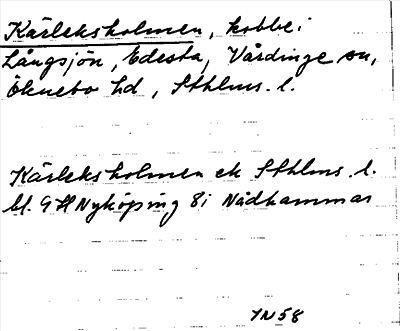 Kärleksholmen, kobbe i
Långsjön, Edesta, Vårdinge sn,
Öknebo hd, Sthlms. l.
Kärleksholmen ek Sthlms. l.
bl. 9H Nyköping 8i Nådhammar
IN58